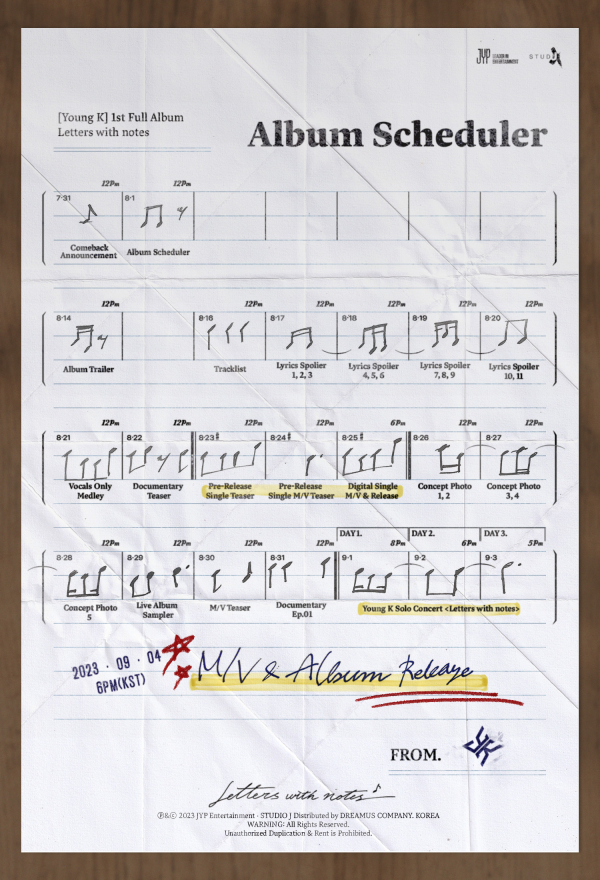 JYP LEADER IN ENTERTAINMENT STUDIO J
[Young K] 1st Full Album
Letters with notes
Album Scheduler
12Pm 12Pm
7·31 8·1
Comeback Announcement
Album Scheduler
12Pm 12Pm 12Pm 12Pm 12Pm 12Pm
8·14 8·16 8·17 8·18 8·19 8·20
Album Trailer
Tracklist
Lyrics Spoiler
1, 2, 3
Lyrics Spoiler
4, 5, 6
Lyrics Spoiler
7, 8, 9
Lyrics Spoiler
10, 11
12Pm 12Pm 12Pm 12Pm 6Pm 12Pm 12Pm
8·21 8·22 8·23 8·24 8·25 8·26 8·27
Vocals Only
Medley
Documentary
Teaser
Pre-Release
Single Teaser
Pre-Release
Single M/V Teaser
Digital Single
M/V & Release
Concept Photo
1, 2
Concept Photo
3, 4
DAY1. DAY2. DAY3.
12Pm 12Pm 12Pm 12Pm 8Pm 6Pm 5Pm
8·28 8·29 8·30 8·31 9·1 9·2 9·3
Concept Photo
5
Live Album
Sampler
M/V Teaser
Documentary
Ep.01
Young K Solo Concert <Letters with notes>
2023 · 09 · 04
6PM(KST)
M/V & Album Release
FROM. YK
Letters with notes
℗&© 2023 JYP Entertainment · STUDIO J Distributed by DREAMUS COMPANY. KOREA
WARNING: All Rights Reserved.
Unauthorized Duplication & Rent is Prohibited.